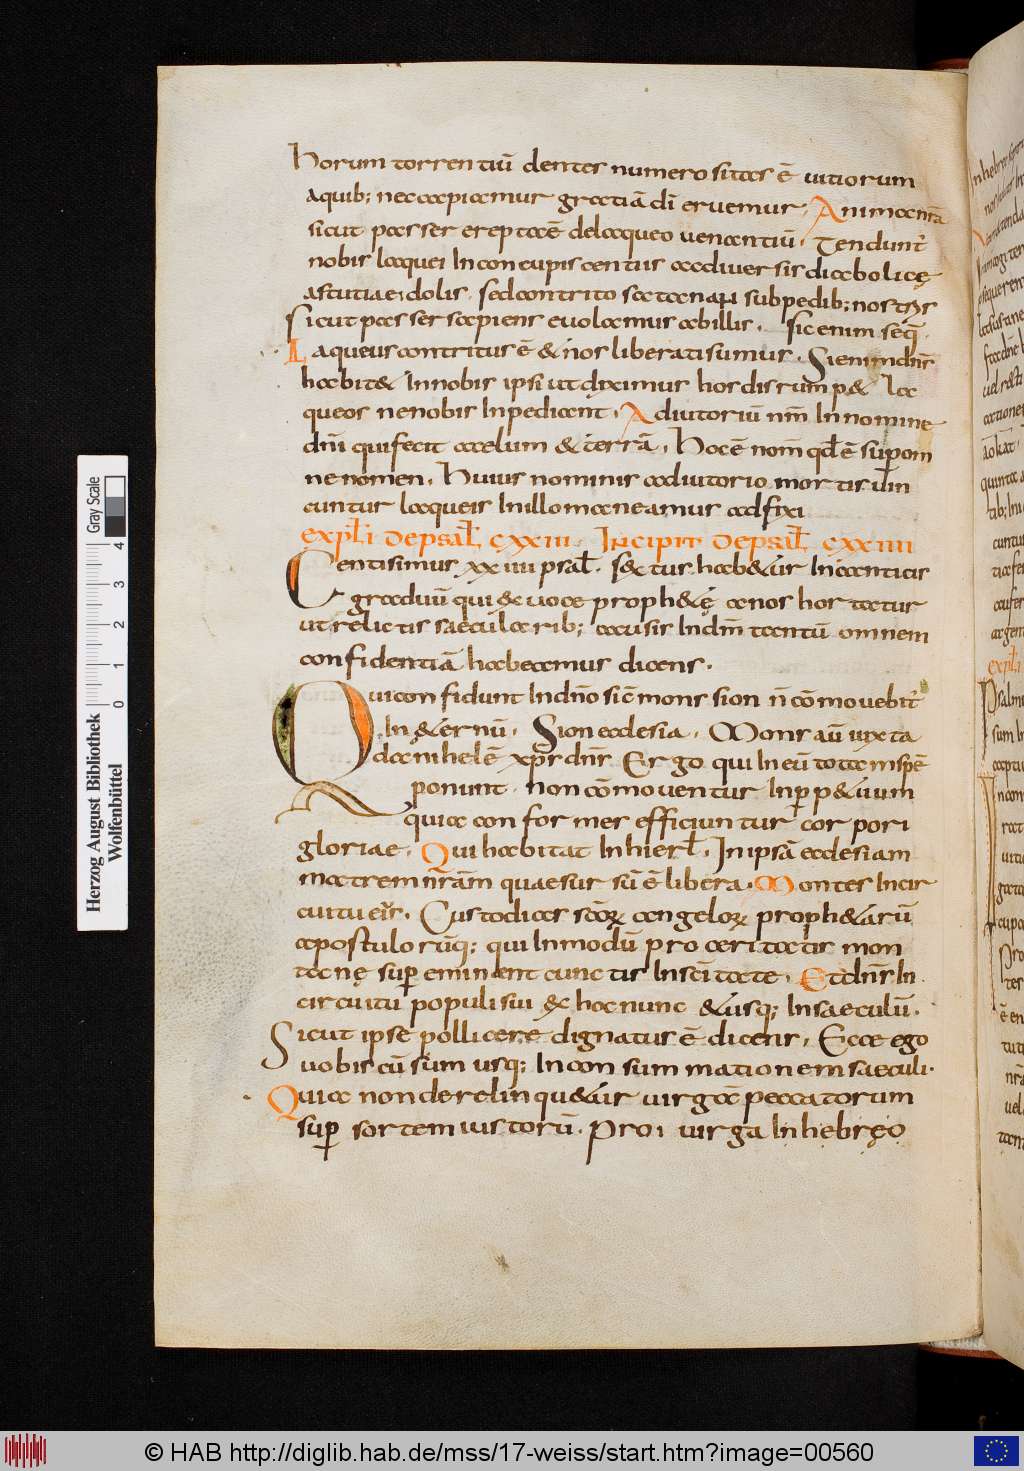 horum torrentiū dentes numerositas ē uitiorum
a quib; nec capiamur gratiā dī eruemur. Anima nr̄a
sicut passer erepta ē de laqueo uenantiū. Tendunt̄
nobis laquei In concupiscentiis ac diuersis diabolicę
astutiae; dolis. sed contrito satana sub pedib; nostris
sicut passer sapiens euolamus ab illis. sic enim seq̄
Laqueus contritus ē & nos liberati sumus. Si enim dn̄s
habit& In nobis ipsi ut diximus hos disrump& la
queos ne nobis Inpediant. Adiutoriū nr̄m In nomine
dn̄i qui fecit caelum & terrā. Hoc ē nom̄ qd̄ ē sup om
ne nomen. Huius nominis adiutorio mortis uin
cuntur laqueis In illo maneamus adfixi
expl̄i de psal̄ cxxiii. Incipit de psal̄ cxxiiii
Centisimus xxiiii psal̄. s&tus hab&ur In canticis
graduū qui & uoce proph&ę a nos hortatur
ut relictis saecularib; causis In dn̄m tantū omnem
confidentiā habeamus dicens.
Qui confidunt In dn̄o sic̄ mons sion n̄ cōmouebit̄
In &ernū. Sion ecclesia. Mons aū iuxta
danihelē xp̄s dn̄s. Ergo qui In eū tota mspē
ponunt. non cōmouentur In perp&uum
quia conformes efficiuntur corpori
gloriae. Qui habitat In hierl̄. In ipsā ecclesiam
matrem nr̄am quae sursū ē libera. Montes In cir
cuitu eius. Custodias scōrꝝ angelorꝝ proph&arū
apostulorūq; qui In modū pro ceritatis mon
tanę supereminent cunctis In sc̄itate. Et dn̄s In
circuitu populi sui & hoc nunc &usq; In saeculū.
Sicut ipse pollicere dignatus ē dicens. Ecce ego
uobiscū sum usq; In consummationem saeculi.
Quia non derelinqu&ur uirgā peccatorum
sup sortem iustorū. Pro uirga In hebręo
Herzog August Bibliothek
Wolfenbüttel
0 1 2 3 4
Gray Scale
© HAB http://diglib.hab.de/mss/17-weiss/start.htm?image=00560